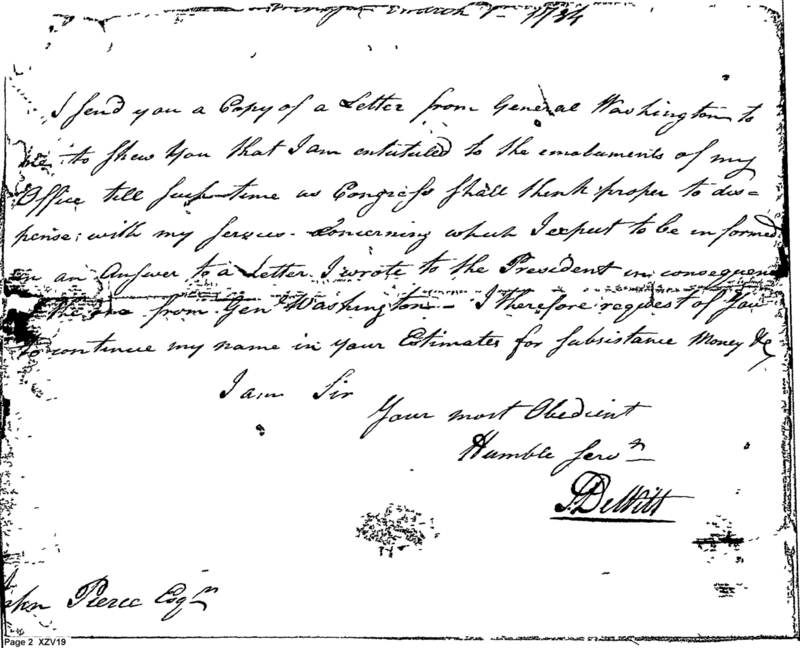 March 1st 1784
I send you a Copy of a Letter from General Washington to
me to shew You that I am entituled to the emoluments of my
Office till such time as Congress shall think proper to dis=
pense with my services. Concerning which I expect to be informed
in an Answer to a Letter I wrote to the President in consequence
the one from Genl Washington - I therefore request of You
to continue my name in your Estimates for Subsistance Money &c
I am Sir
Your most Obedient
Humble Servn
S. DeWitt
John Pierce Esqr
Page 2 XZV19